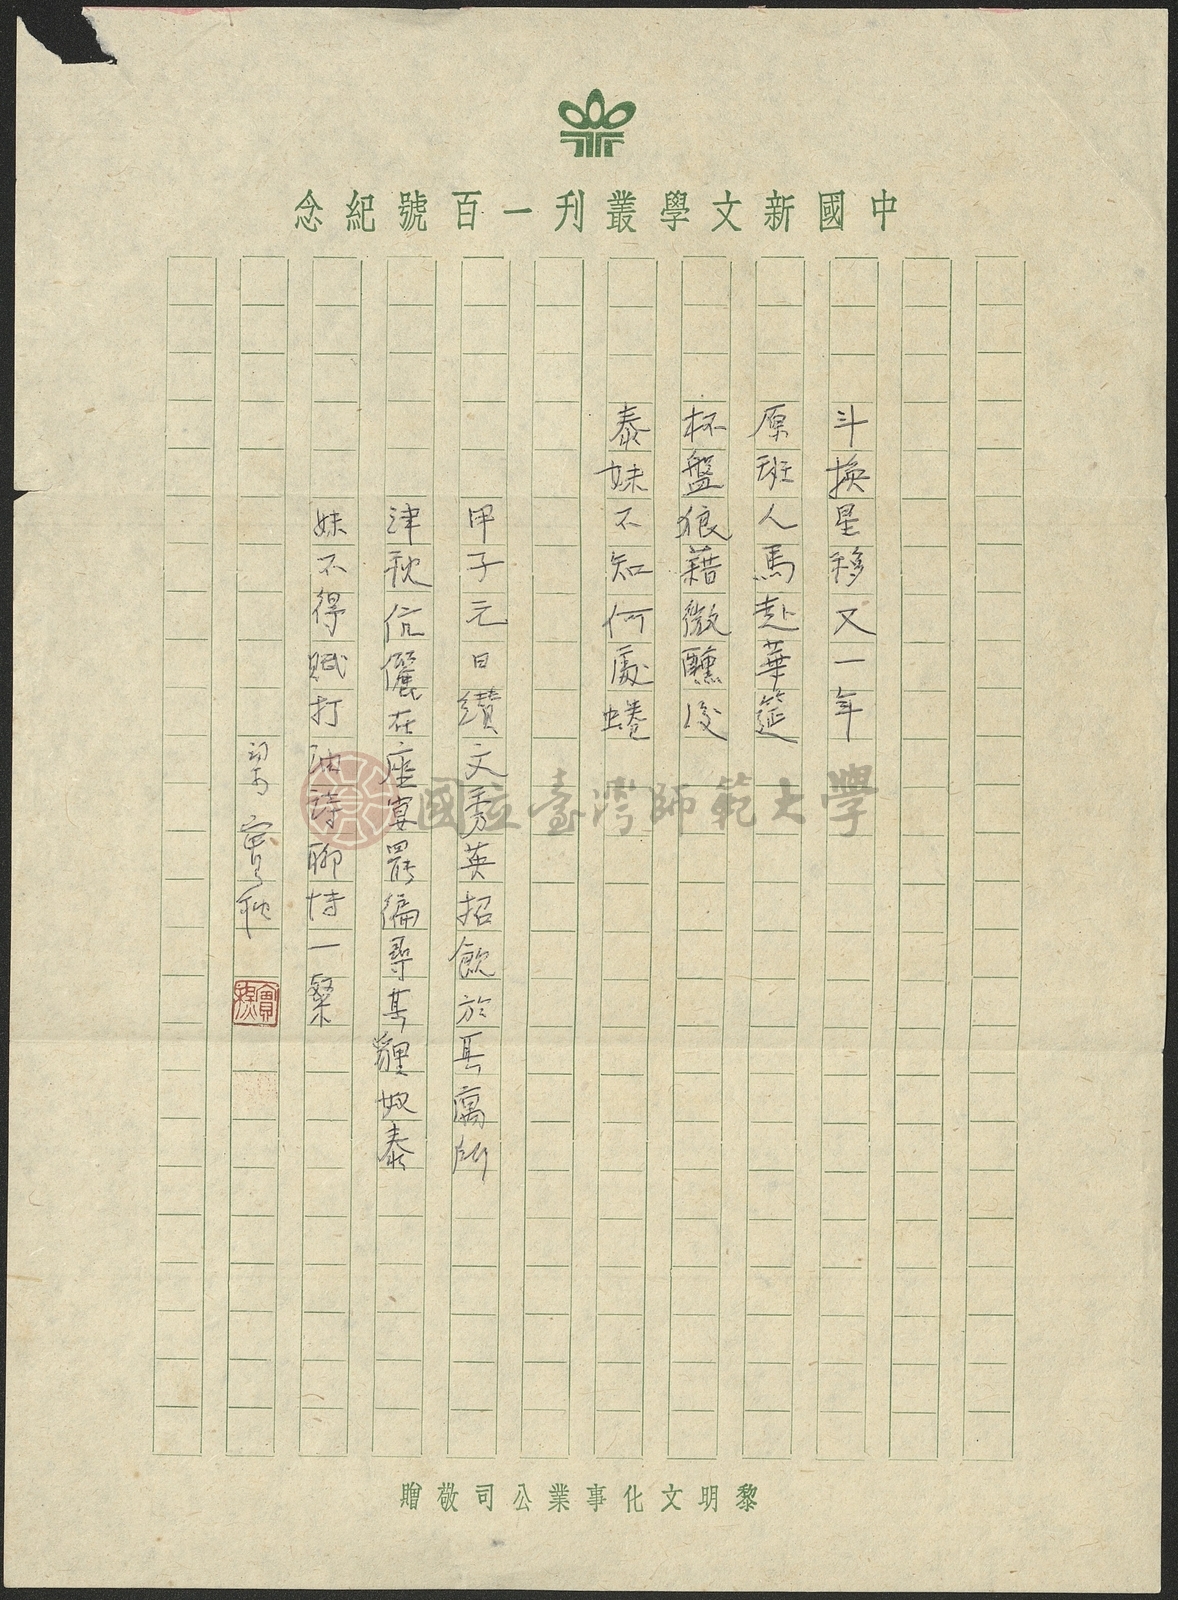 中國新文學叢刊一百號紀念
斗換星移又一年
原班人馬赴華筵
杯盤狼藉微醺後
泰妹不知何處蜷
甲子元日績文秀英招飲於其寓所
津秋伉儷在座宴罷徧尋其貍奴泰
妹不得賦打油詩聊博一粲
梁實秋
國立臺灣師範大學
黎明文化事業公司敬贈